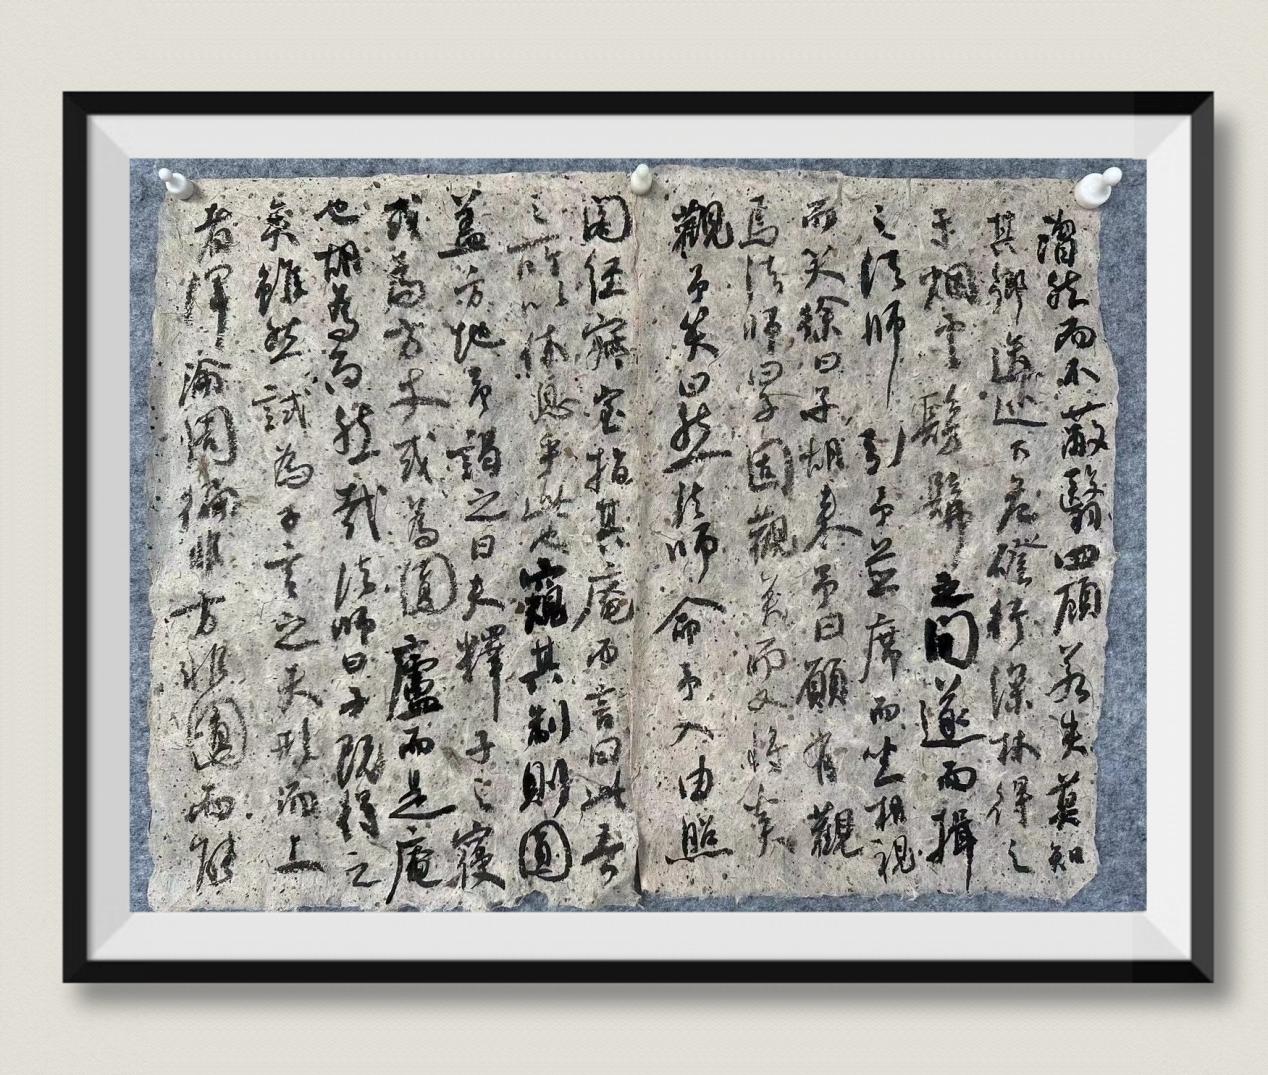 溘然而不蔽翳四顧若失莫知
其鄉逡巡下危磴行深林得之
於烟雲髣髴之間遂而揖
之法師引予並席而坐相視
而笑徐曰子胡來予曰願有觀
焉法師曰子固觀矣而又將奚
觀予笑曰然法師命予入由照
閣經寂室指其庵而言曰此吾
之所以休息乎此也窺其制則圓
蓋方地予謁之曰夫釋子之寢
或為方丈或為圓廬而是庵
也胡為而然哉法師曰子既得之
矣雖然試為子言之夫形而上
者渾淪周徧非方非圓而能